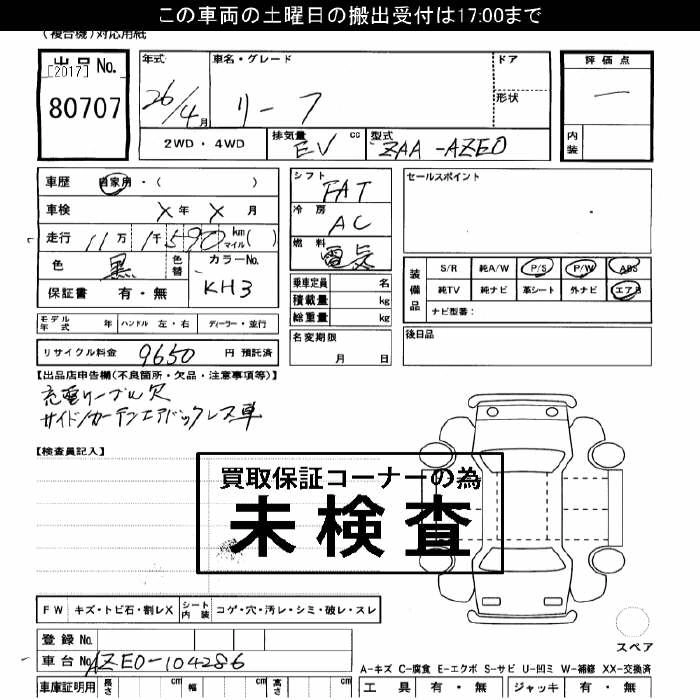 この車両の土曜日の搬出受付は17:00まで
(複合機)対応用紙
出品No. 年式 車名・グレード ドア 評価点
[2017]
80707 26/4月 リーフ 形状 一
2WD・4WD 排気量 EV cc 型式 ZAA-AZEO 内装
車歴 自家用・( )
車検 X年 X月
走行 11万 1千590 km マイル( )
色 黒 色替 カラーNo. KH3
保証書 有・無
シフト FAT
冷房 AC
燃料 電気
乗車定員 名
積載量 kg
総重量 kg
セールスポイント
装備品 S/R 純A/W P/S P/W ABS
純TV 純ナビ 革シート 外ナビ エアB
ナビ型番:
モデル年式 年 ハンドル 左・右 ディーラー・並行
リサイクル料金 9650 円 預託済
名変期限 月 日
後日品
【出品店申告欄(不良箇所・欠品・注意事項等)】
充電ケーブル欠
サイド/カーテンエアバックレス車
【検査員記入】
買取保証コーナーの為
未検査
FW キズ・トビ石・割レX シート内装 コゲ・穴・汚レ・シミ・破レ・スレ
登録No.
車台No. AZEO-104286
車庫証明用 長さ cm 幅 cm 高さ cm
スペア
A-キズ C-腐食 E-エクボ S-サビ U-凹ミ W-補修 XX-交換済
工具 有・無 ジャッキ 有・無